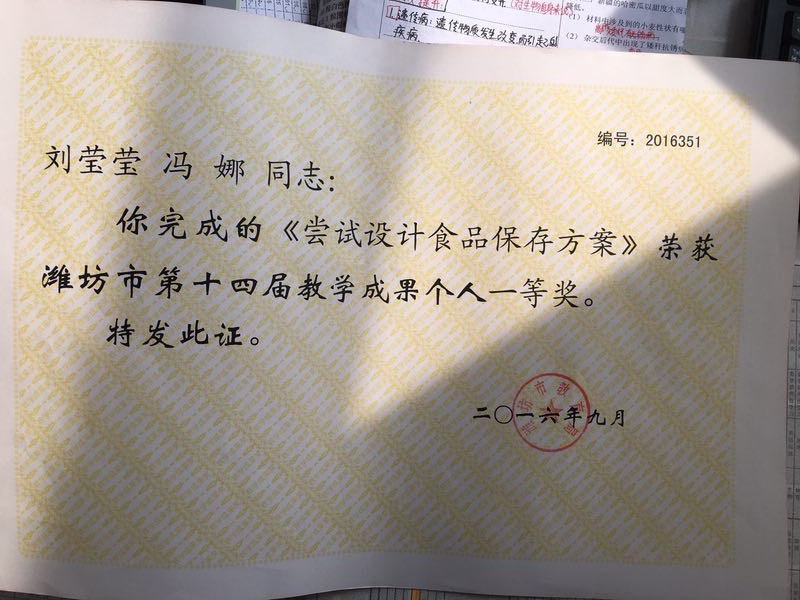 ①遗传病：遗传物质发生改变而引起的
疾病
降低。
(1) 材料中涉及到的小麦性状有
(2) 杂交后代中出现了矮秆抗锈
编号：2016351
刘莹莹 冯 娜 同志：
你完成的《尝试设计食品保存方案》荣获
潍坊市第十四届教学成果个人一等奖。
特发此证。
潍坊市教育局
二〇一六年九月